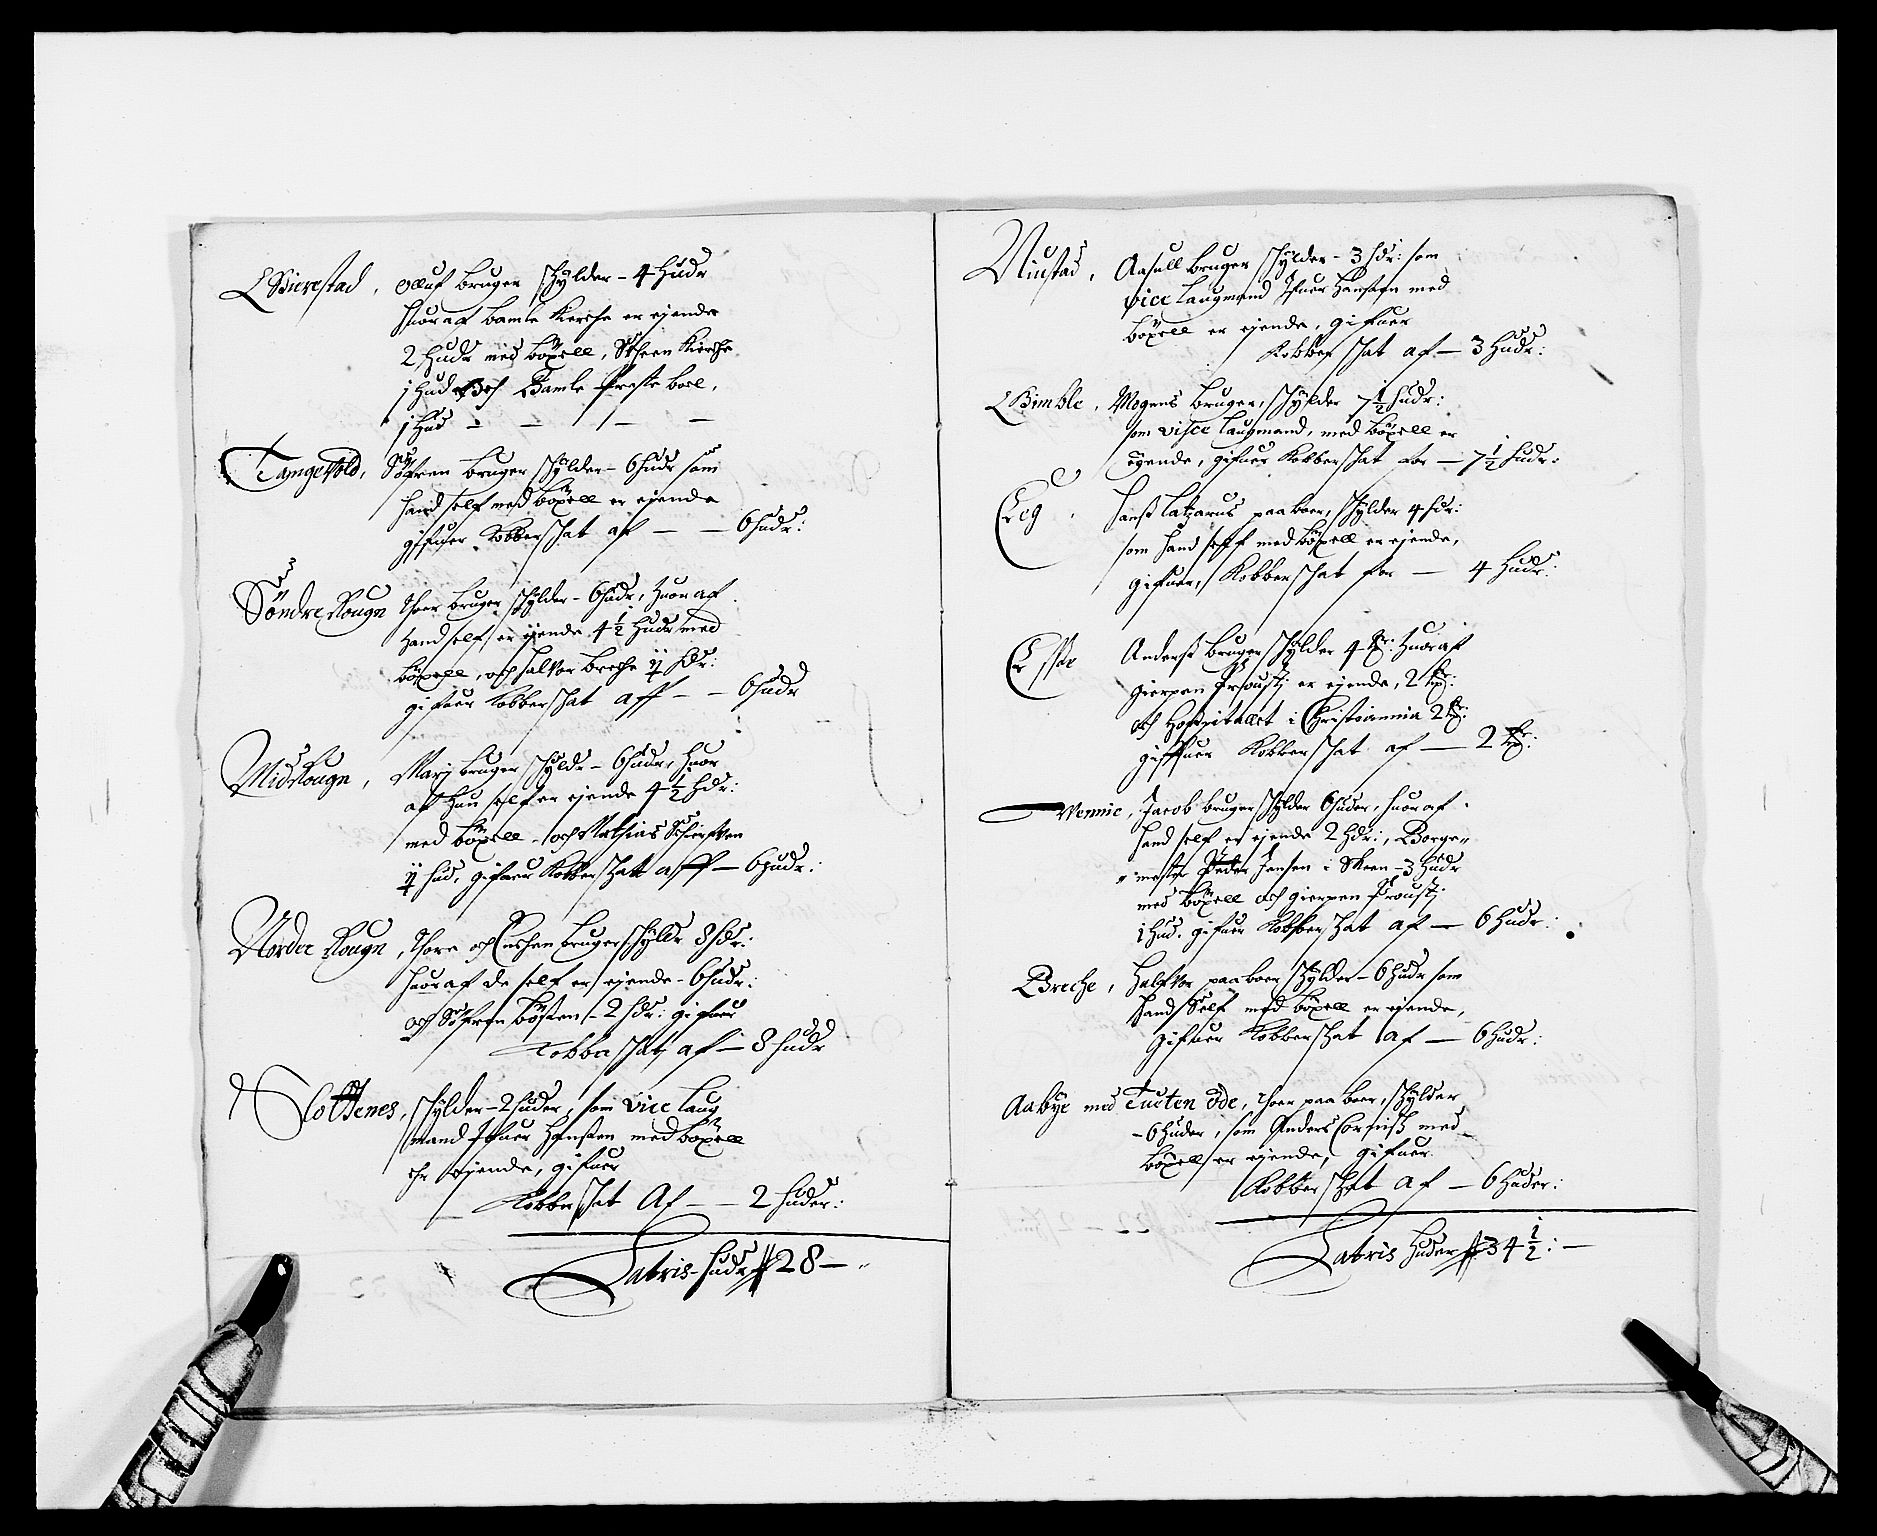 Bierestad, Olluf bruger schylder - 4 Hudr
huoraf bamle Kierche er ejende
2 Hudr med böxell, Scheen Kierche
1 Hud och Bamle Preste boel,
1 Hud
Tangevold, Söfren bruger schylder - 6 Hudr som
hand self med böxell er ejende
gifuer Kobberschat af - - 6 Hudr:
Söndre Rougn Thor bruger schylder - 6 Hudr, huoraf
hand self er ejende 4 1/2 Hudr med
böxell, och halvor breche
gifuer Kobberschat aff - - 6 Hudr
Mid Rougn, Marj bruger schyldr - 6 Hudr, huor
af hun self er ejende 4 1/2 Hdr:
med böxell och Mathias
hud, gifuer Kobberschat aff - 6 Hudr:
Norder Rougn, Thore och bruger schyldr 8 Hdr:
huoraf de self er ejende - 6 Hudr:
och Söfren - 2 Hdr: gifuer
Kobberschat af - 8 Hudr
Slottenes, schylder - 2 huder, som vice Laug
mand Ifuer Hansen med böxell
ehr ejende, gifuer
Kobberschat Af - - 2 huder:
Latris Hudr 28 -
Niustad, Aasull bruger schylder - 3 Hdr: som
vice Laugmand Ifuer Hansen med
böxell er ejende, gifuer
Kobberschat af - 3 Hudr:
Bimble, Mogens bruger, schylder 7 1/2 Hudr:
som vice Laugmand, med böxell er
ejende, gifuer Kobberschat for - 7 1/2 Hudr:
Eeg. Hans Latzarus paaboer, schylder 4 Hdr:
som hand self med böxell er ejende,
gifuer, Kobberschat for - 4 Hudr:
Anders bruger schylder 4 huoraf
gierpen Proustj er ejende, 2
och Hospitallet i Christiannia 2
giffuer Kobberschat af - 2
Vennie, Jacob bruger schylder 6 huder, huoraf
hand self er ejende 2 Hdr:, Borge„
„mester Peder Jensen i Skeen - 3 Hudr
med böxell och gierpen Proustj
1 Hud. gifuer Kobberschat af - 6 Hudr:
Breche, Halfvor paaboer, schylder - 6 Hudr som
hand self med böxell er ejende,
gifuer Kobberschat af - 6 Hudr:
Aabye med Tueten öde, Thor paaboer, schylder
- 6 huder, som Anders med
böxell er ejende, gifuer
Kobberschat af - 6 Huder:
Latris Huder 34 1/2: -